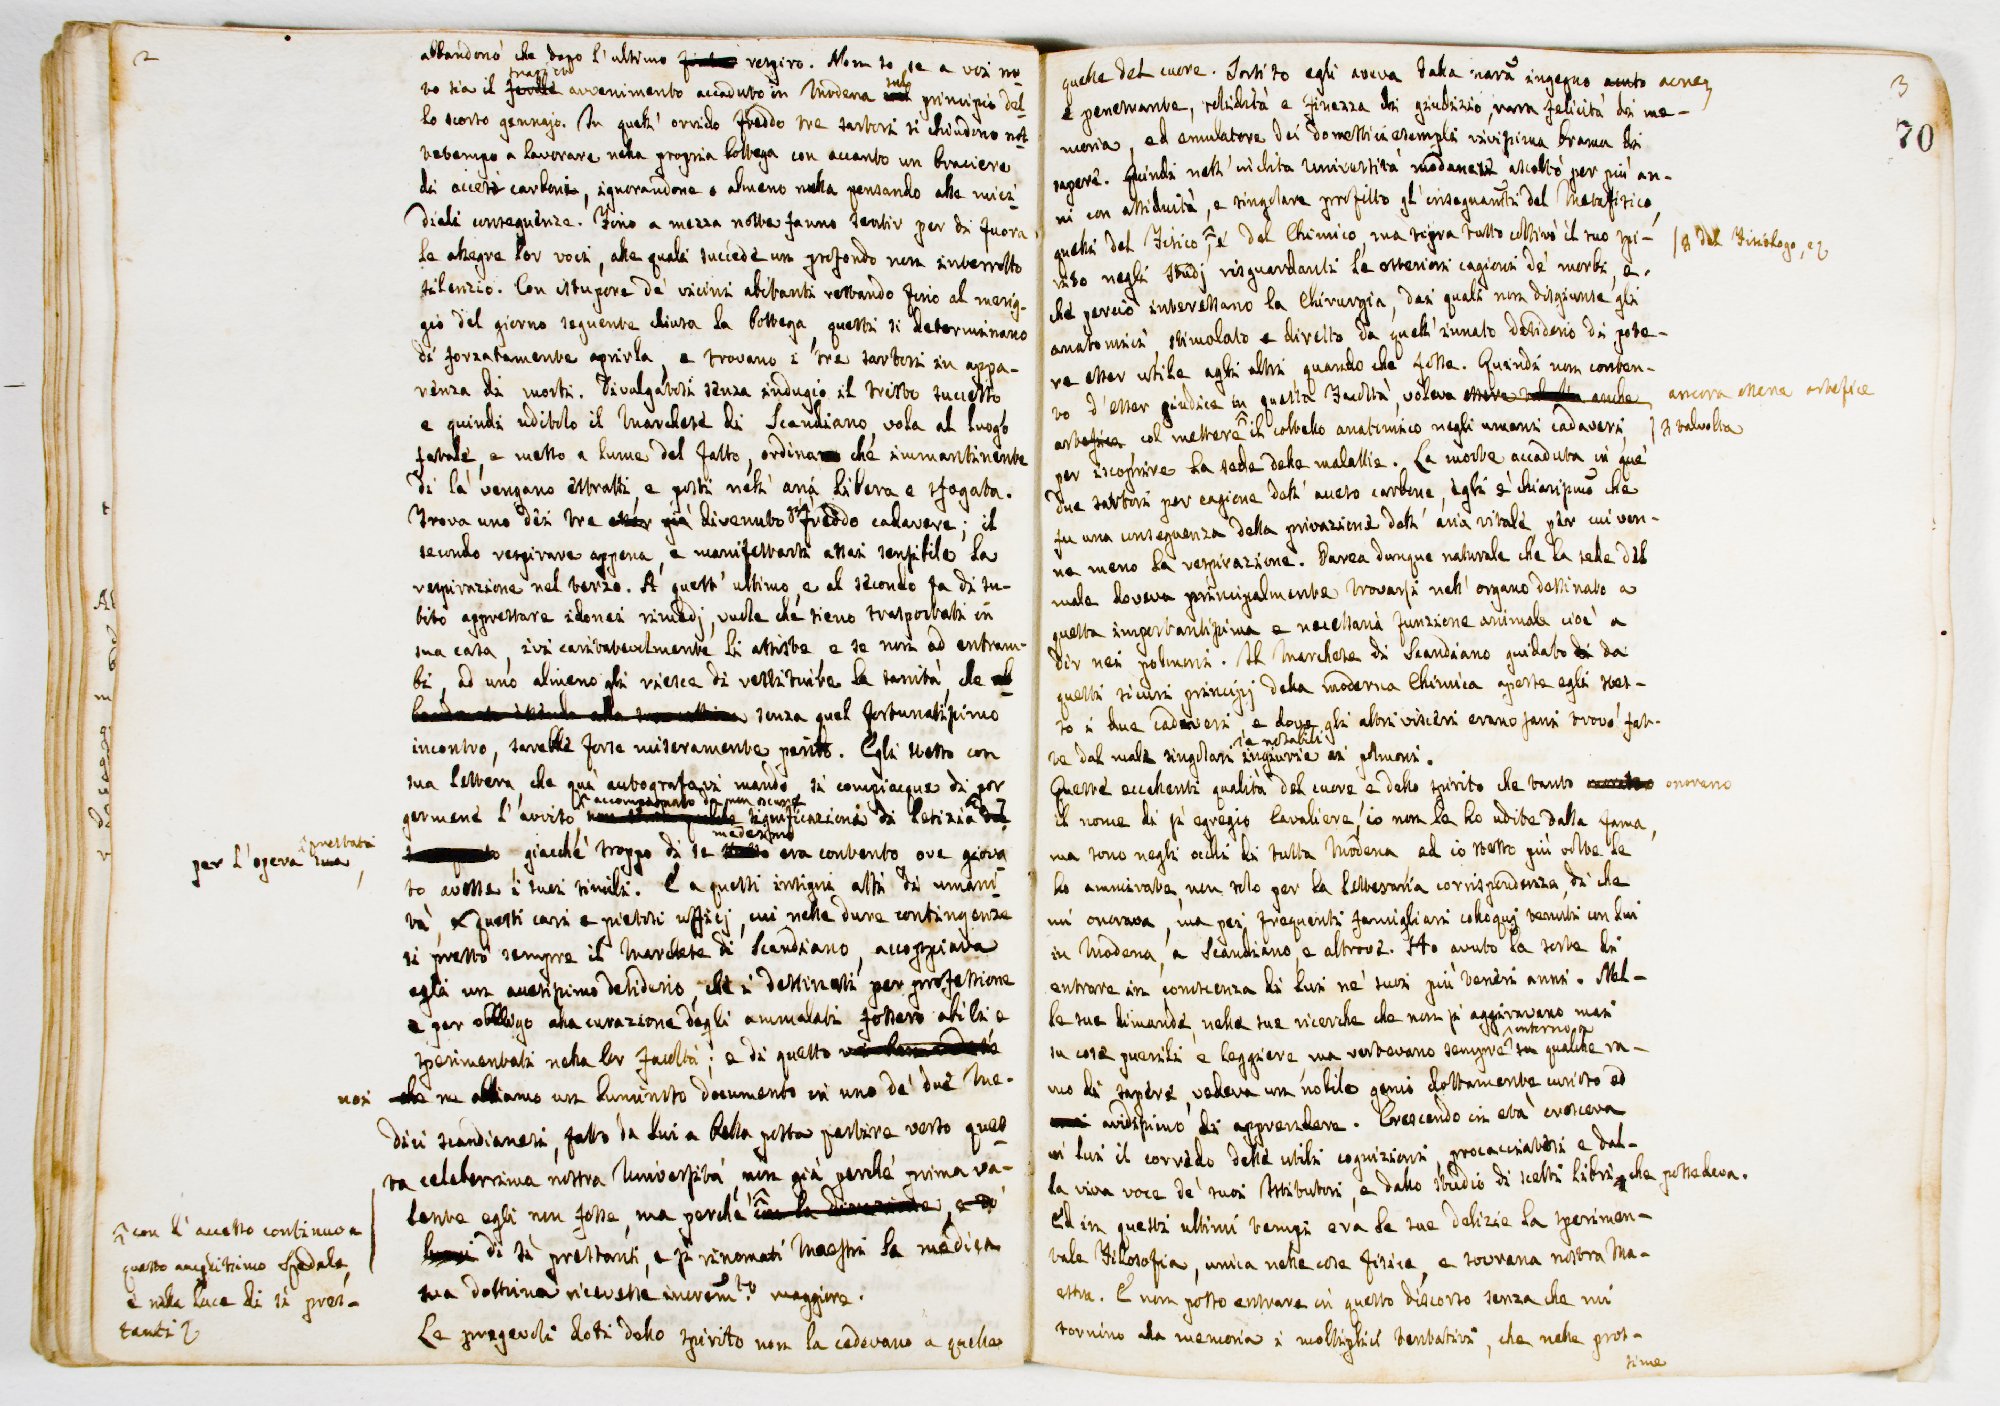 2
abbandonò che dopo l'ultimo respiro. Non so se a voi no
to sia il tragico avvenimento accaduto in Modena sul principio del
lo scorso gennajo. In quell'orrido freddo tre sartori si chiudono not
tetempo a lavorare nella propria bottega con accanto un braciere
di accesi carboni, ignorandone o almeno nulla pensando alle mici
diali conseguenze. Fino a mezza notte fanno sentir per di fuora
le allegre lor voci, alle quali succede un profondo non interrotto
silenzio. Con istupore de' vicini abitanti restando fino al merig-
gio del giorno seguente chiusa la bottega, questi si determinano
di forzatamente aprirla, e trovano i tre sartori in appa-
renza di morti. Divolgatosi senza indugio il tristo successo
e quindi uditolo il Marchese di Scandiano, vola al luogo
fatale, e messo a lume del fatto, ordina che immantinente
di là vengano estratti, e posti nell'aria libera e sfogata.
Trova uno dei tre già divenuto freddo cadavere; il
secondo respirare appena, e manifestarsi assai sensibile la
respirazione nel terzo. A quest'ultimo, e al secondo fa di su-
bito apprestare idonei rimedj, vuole che sieno trasportati in
sua casa, ivi caritatevolmente li assiste e se non ad entram-
bi, ad uno almeno gli riesce di restituire la sanità, che
senza quel fortunatissimo
incontro, sarebbe forse miseramente perito. Egli stesso con
sua lettera che quì autografa vi mando si compiacque di por
germene l'avviso accompagnato da non oscure significazioni di letizia
per l'opera prestata,
giacché troppo di se medesimo era contento ove giova
to avesse i suoi simili. E a questi insigni atti di umani
tà, a questi cari e pietosi ufficj, cui nelle dure contingenze
si prestò sempre il Marchese di Scandiano, accoppiava
egli un accesissimo desiderio, che i destinati per professione
e per obbligo alla curazione degli ammalati fossero abili e
sperimentati nella lor facoltà; e di questo
noi ne abbiamo un luminoso documento in uno de' due Me-
dici scandianesi, fatto da lui a bella posta partire verso ques
ta celeberrima nostra Università, non già perché prima va-
lente egli non fosse, ma perché
con l'accesso continuo a
questo amplissimo Spedale,
e nella luce di sì pres-
tanti
di sì prestanti, e sì rinomati Maestri la medica
sua dottrina ricevesse increm.to maggiore.
Le pregevoli doti dello spirito non la cedevano a quelle
3
70
quelle del cuore. Sortito egli aveva dalla natura ingegno acre,
e penetrante, solidità e finezza di giudizio, rara felicità di me-
moria, ed emulatore dei domestici esempli vivissima brama di
sapere. Quindi nell'inclita Università modanese ascoltò per più an-
ni con assiduità, e singolare profitto gl'insegnamenti del Metafisico,
quelli del Fisico, e del Chimico, ma sopra tutto coltivò il suo spi-
del Fisiologo, e
rito negli studj risguardanti le esteriori cagioni de' morbi, e
che perciò interessano la Chirurgia, dai quali non disgiunse gli
anatomici, stimolato e diretto da quell'innato desiderio di pote-
re esser utile agli altri quando che fosse. Quindi non conten-
to d'esser giudice in questa Facoltà, voleva ancora essere artefice
col mettere talvolta il coltello anatomico negli umani cadaveri,
per iscoprire la sede delle malattie. La morte accaduta in que'
due sartori per cagione dell'acceso carbone, egli è chiarissimo che
fu una conseguenza della privazione dell'aria vitale per cui ven-
ne meno la respirazione. Parea dunque naturale che la sede del
male doveva principalmente trovarsi nell'organo destinato a
questa importantissima e necessaria funzione animale cioè a
dir nei polmoni. Il Marchese di Scandiano guidato da
questi sicuri principj della moderna Chimica aperse egli stes-
so i due cadaveri e dove gli altri visceri erano sani trovò fat-
te dal male singolari e notabili ingiurie ai polmoni.
Queste eccellenti qualità del cuore e dello spirito che tanto onorano
il nome di sì egregio Cavaliere, io non le ho udite dalla fama,
ma sono negli occhi di tutta Modena ed io stesso più volte le
ho ammirate, non solo per la letteraria corrispondenza, di che
mi onorava, ma pei frequenti famigliari colloquj tenuti con lui
in Modena, a Scandiano, e altrove. Ho avuto la sorte di
entrare in conoscenza di lui ne' suoi più teneri anni. Nel-
le sue dimande, nelle sue ricerche che non si aggiravano mai
su cose puerili e leggiere, ma vertevano sempre intorno a qualche ra-
mo di sapere, vedeva un nobile genio dottamente curioso ed
avidissimo di apprendere. Crescendo in età cresceva
in lui il corredo delle utili cognizioni, procacciatosi e dal-
la viva voce de' suoi Istitutori, e dallo studio di scelti libri che possedeva.
Ed in questi ultimi tempi era le sue delizie la sperimen-
tale Filosofia, unica nelle cose fisiche, e sovrana nostra Ma-
estra. E non posso entrare in questo discorso senza che mi
tornino alla memoria i moltiplici tentativi, che nelle pros-
sime